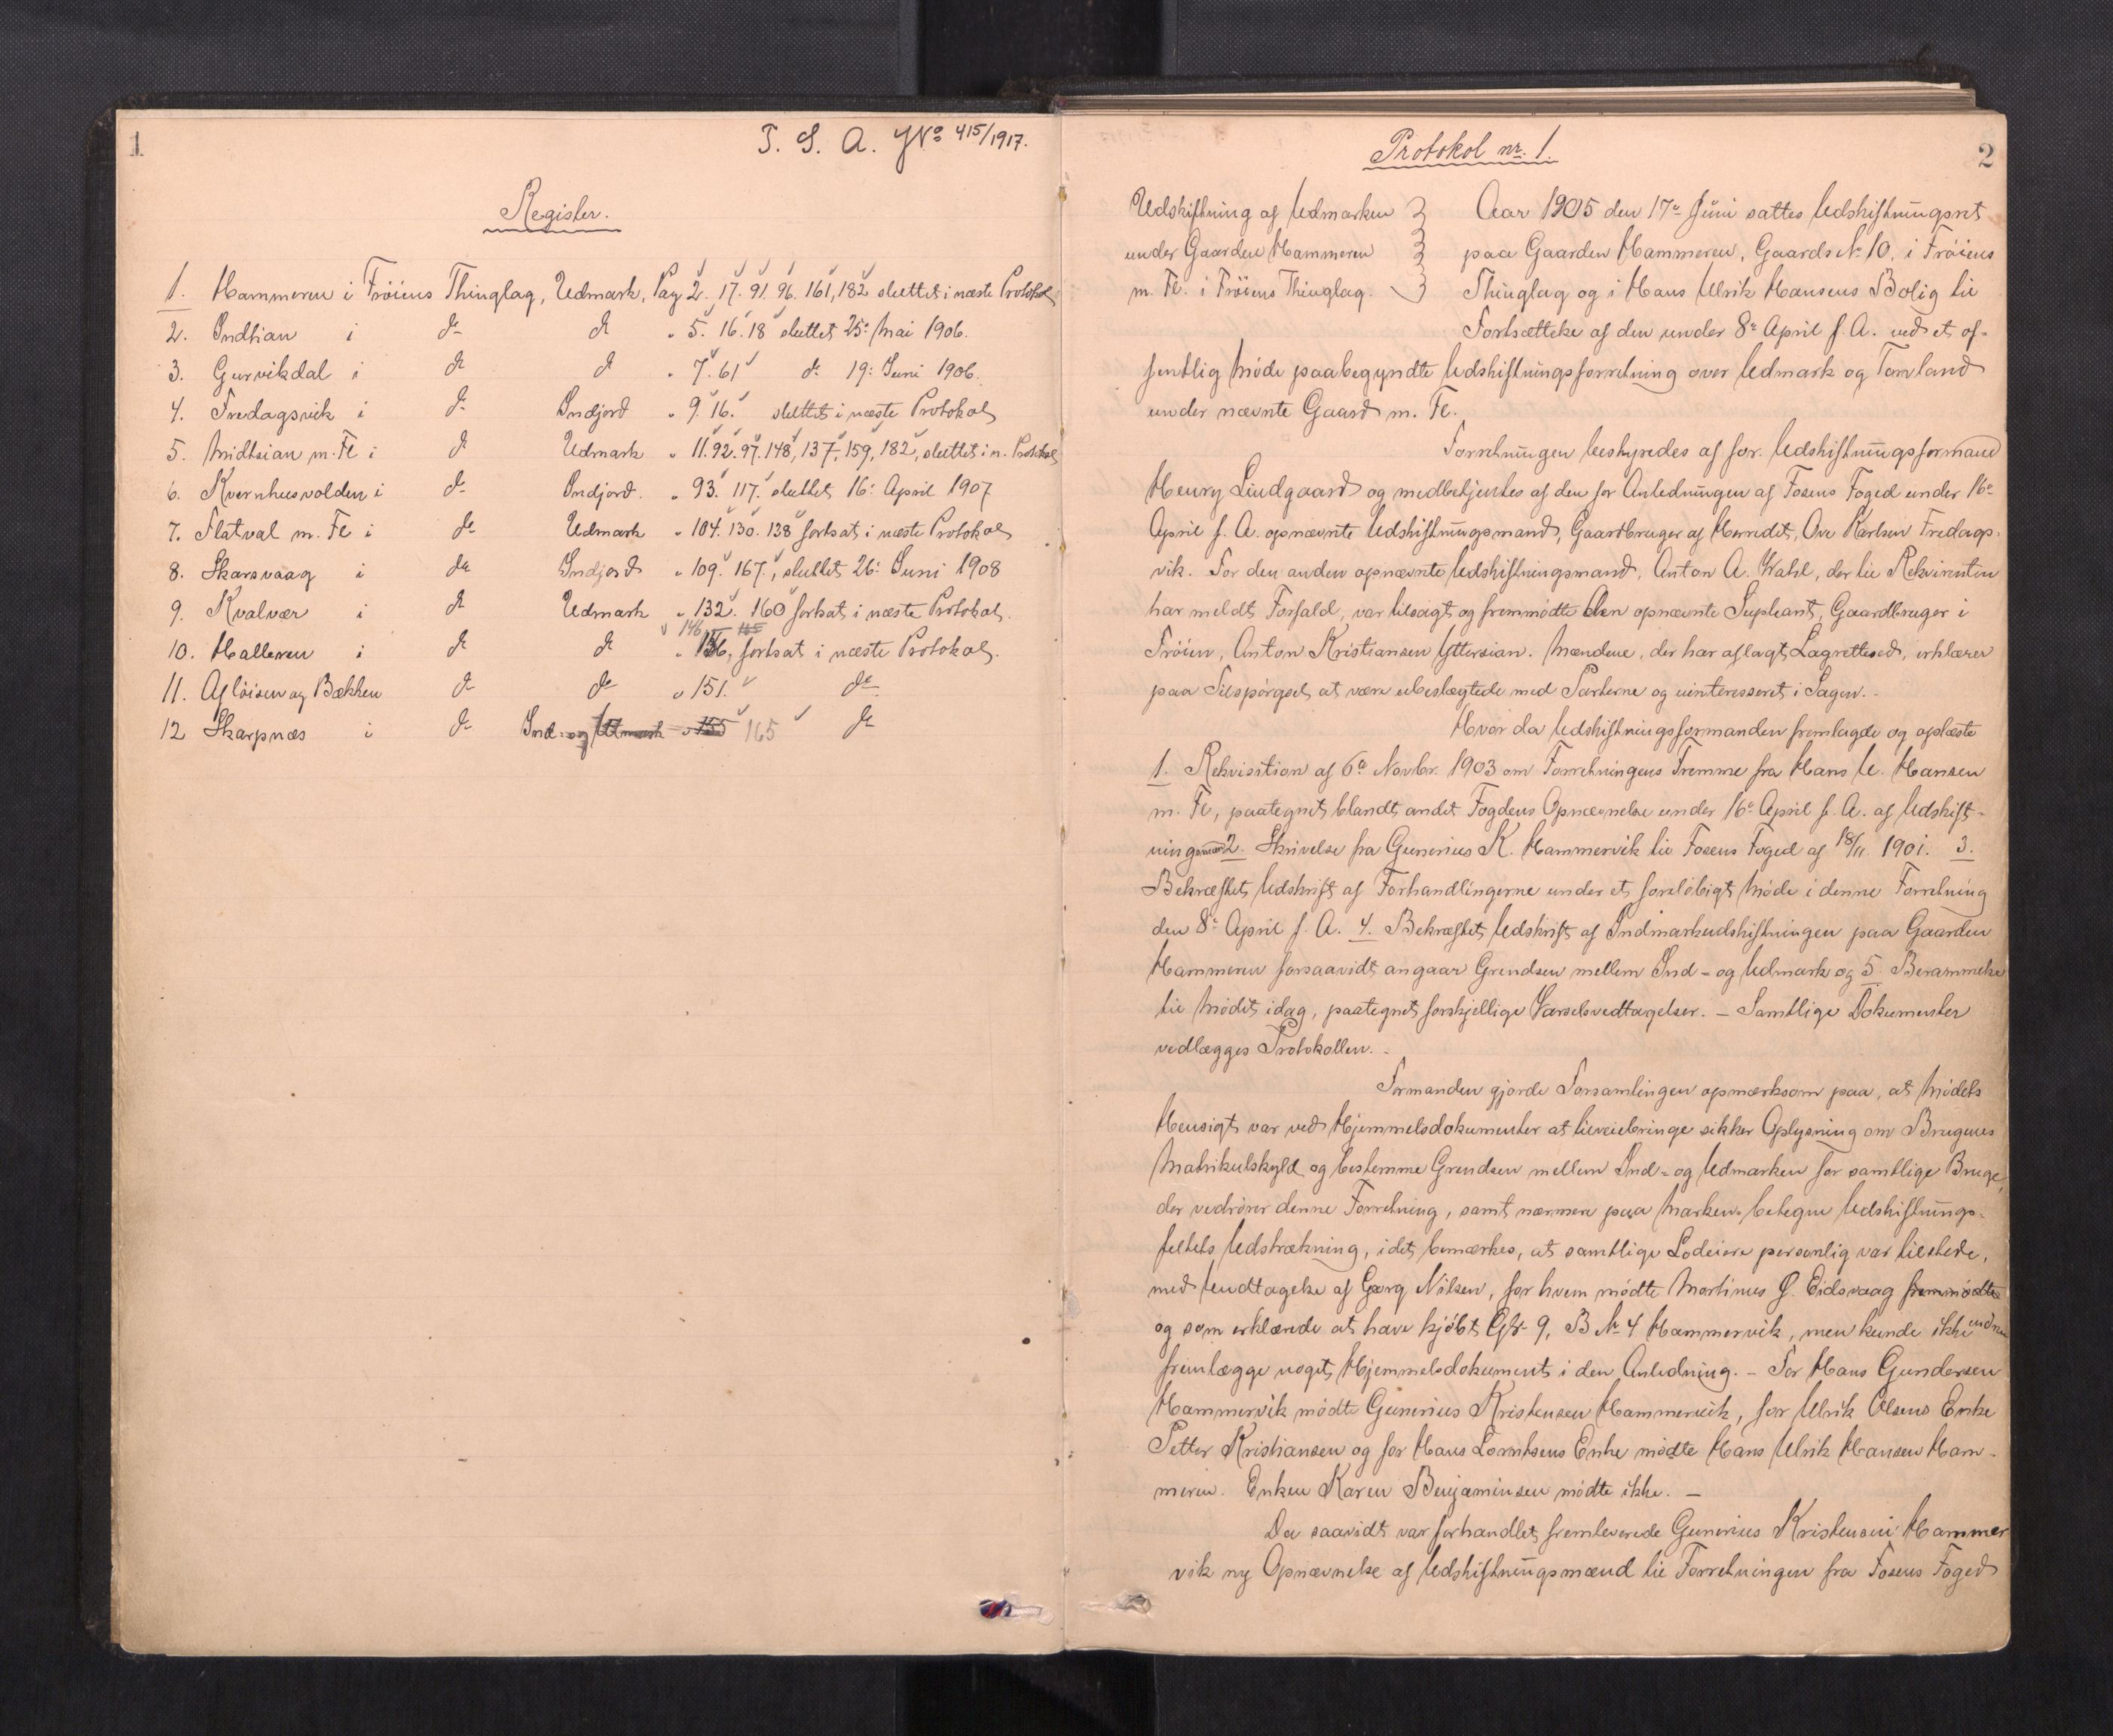 1
T. S. A. JNo 415/1917.
Register.
1. Hammeren i Fröiens Thinglag, Udmark, Pag 2. 17. 91. 96. 161, 182 sluttet i næste Protokol
2. Indtian i do do " 5. 16. 18 sluttet 25: Mai 1906.
3. Gurvikdal i do do " 7. 61 do 19: Juni 1906.
4. Fredagsvik i do Indjord " 9. 16. sluttet i næste Protokol
5. Midtsian m. Fl i do Udmark " 11. 92. 97. 148, 137, 159, 182, sluttet i n. Protokol
6. Kvernhusvolden i do Indjord. " 93. 117. sluttet 16: April 1907
7. Flatval m. Fl i do Udmark " 104. 130. 138 fortsat i næste Protokol
8. Skarsvaag i do Indjord " 109. 167., sluttet 26: Juni 1908
9. Kvalvær i do Udmark " 132. 160 fortsat i næste Protokol.
146
10. Halleren i do do " 136, fortsat i næste Protokol.
11. Aflöisen og Bækken do do " 151. do
12 Skarpnæs i do Ind- og Udmark " 155 165 do
2
Protokol nr. 1.
Udskiftning af Udmarken
under Gaarden Hammeren
m. Fl. i Fröiens Thinglag.
Aar 1905 den 17de Juni sattes Udskiftningsret
paa Gaarden Hammeren, Gaards No 10, i Fröiens
Thinglag og i Hans Ulrik Hansens Bolig til
Fortsættelse af den under 8de April f. A. ved et of-
fentlig Möde paabegyndte Udskiftningsforretning over Udmark og Torvland
under nævnte Gaard m. Fl.
Forretningen bestyredes af for. Udskiftningsformand
Henry Lindgaard og medbetjentes af den for Anledningen af Fosens Foged under 16de
April f. A. opnævnte Udskiftningsmand, Gaardbruger af Herredet, Ove Karlsen Fredags-
vik. For den anden opnævnte Udskiftningsmand, Anton A. Wahl, der til Rekvirenten
har meldt Forfald, var tilsagt og fremmödte den opnævnte Supleant, Gaardbruger i
Fröien, Anton Kristiansen Yttersian. Mændene, der har aflagt Lagretteed, erklærer
paa Tilspörgsel, at være ubeslægtede med Parterne og uinteresseret i Sagen. -
Hvor da Udskiftningsformanden fremlagde og oplæste
1. Rekvisition af 6te Novbr. 1903 om Forretningens Fremme fra Hans U. Hansen
m. Fl, paategnet blandt andet Fogdens Opnævnelse under 16de April f. A. af Udskift-
ningsmænd 2. Skrivelse fra Gunerius K. Hammervik til Fosens Foged af 18/11 1901. 3.
Bekræftet Udskrift af Forhandlingerne under et forelöbigt Möde i denne Forretning
den 8de April f. A. 4. Bekræftet Udskrift af Indmarkudskiftningen paa Gaarden
Hammeren forsaavidt angaar Grendsen mellem Ind- og Udmark og 5. Berammelse
til Mödet idag, paategnet forskjellige Varselsvedtagelser. - Samtlige Dokumenter
vedlægges Protokollen. -
Formanden gjorde Forsamlingen opmærksom paa, at Mödets
Hensigt var ved Hjemmelsdokumenter at tilveiebringe sikker Oplysning om Brugenes
Matrikulskyld og bestemme Grendsen mellem Ind- og Udmarken for samtlige Bruge,
der vedrörer denne Forretning, samt nærmere paa Marken betegne Udskiftnings-
feltets Udstrækning, idet bemærkes, at samtlige Lodeiere personlig var tilstede,
med Undtagelse af Georg Nilsen, for hvem mödte Martinus J. Eidsvaag fremmödte
og som erklærede at have kjöbt GNr 9, B No 4 Hammervik, men kunde ikke endnu
fremlægge noget Hjemmelsdokument i den Anledning. - For Hans Gundersen
Hammervik mödte Gunerius Kristensen Hammervik, for Ulrik Olsens Enke
Petter Kristiansen og for Hans Lorntsens Enke mödte Hans Ulrik Hansen Ham-
meren. Enken Karen Benjaminsen mödte ikke. -
Da saavidt var forhandlet fremleverede Gunerius Kristensen Hammer
vik ny Opnævnelse af Udskiftningsmænd til Forretningen fra Fosens Foged